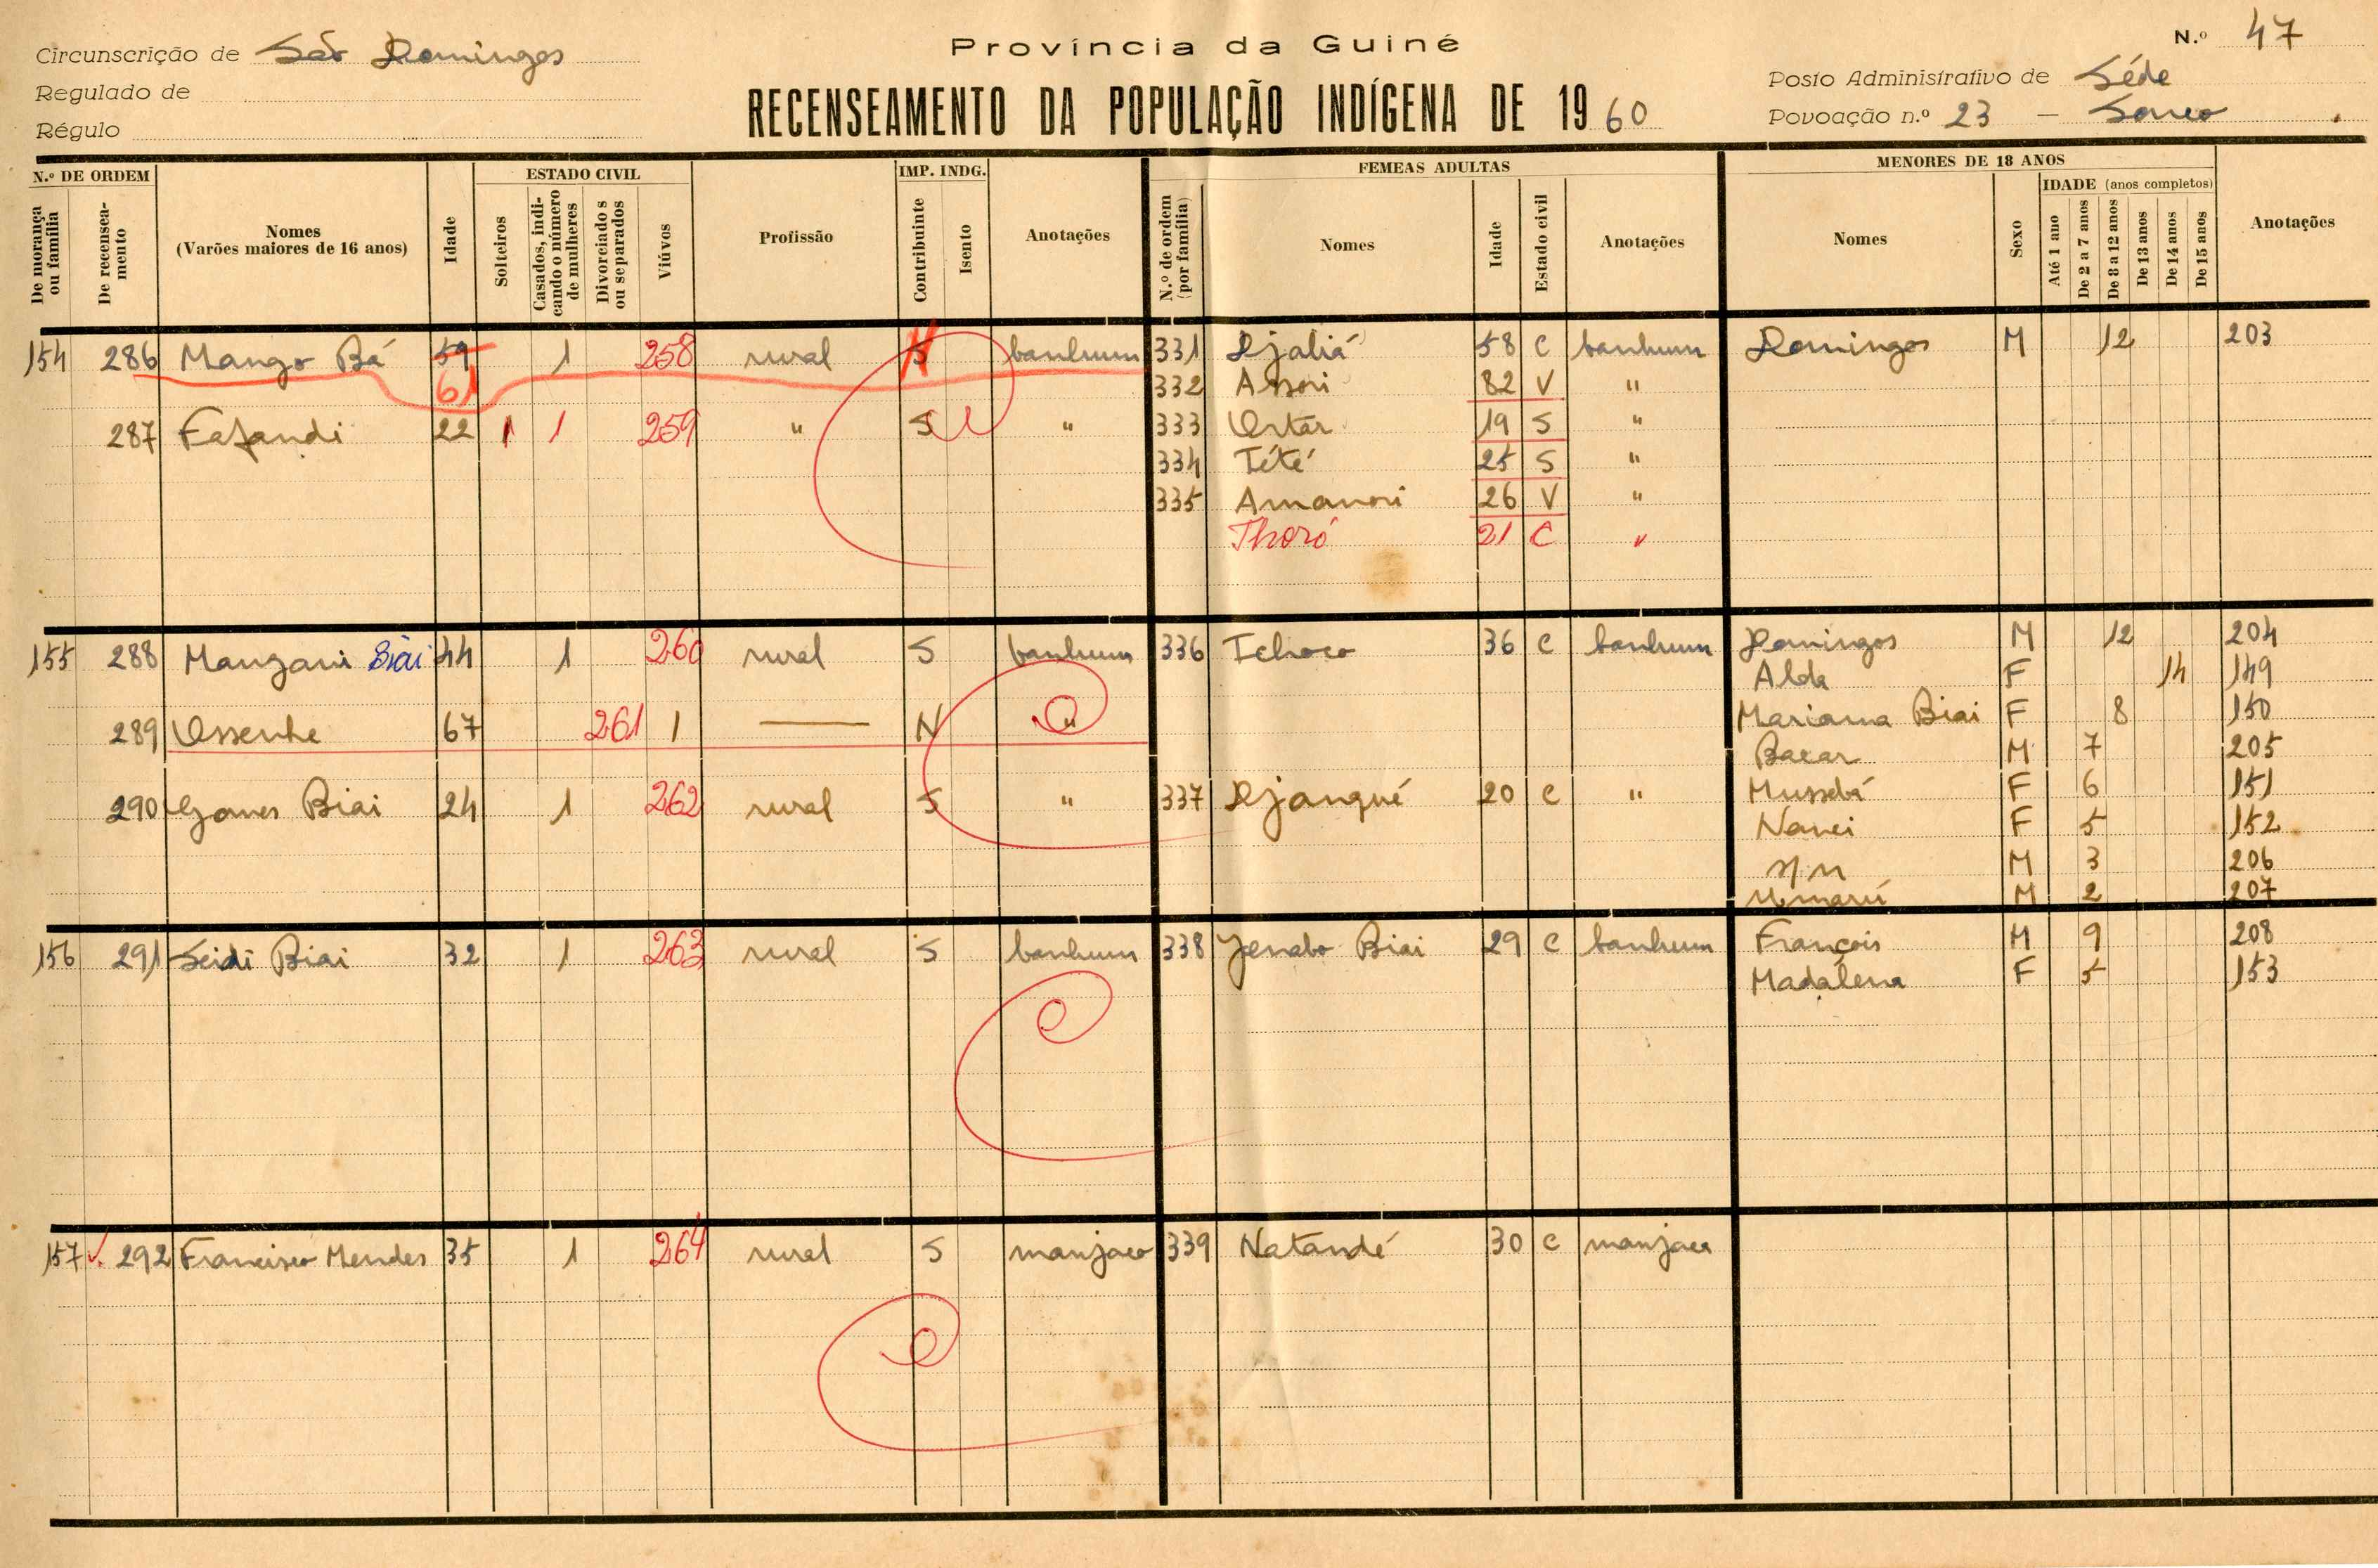 Circunscrição de São Domingos
Província da Guiné
N.º 47
Regulado de
Régulo
RECENSEAMENTO DA POPULAÇÃO INDÍGENA DE 1960
Posto Administrativo de Séde
Povoação n.º 23 –
N.º DE ORDEM
De morança ou família
De recenseamento
Nomes
(Varões maiores de 16 anos)
Idade
ESTADO CIVIL
Solteiros
Casados, indicando o número de mulheres
Divorciados ou separados
Viúvos
Profissão
IMP. INDG.
Contribuinte
Isento
Anotações
FEMEAS ADULTAS
N.º de ordem (por família)
Nomes
Idade
Estado civil
Anotações
MENORES DE 18 ANOS
Nomes
Sexo
IDADE (anos completos)
Até 1 ano
De 2 a 7 anos
De 8 a 12 anos
De 13 anos
De 14 anos
De 15 anos
Anotações
154 286 Mango Bá 59 1 258 rural S banhum 331 Djaliá 58 C banhum Domingos M 12 203
61 332 Assori 82 V "
287 Fafandi 22 1 1 259 " S " 333 19 S "
334 Tété 25 S "
335 Amanori 26 V "
Thoró 21 C "
155 288 Mangani Biai 44 1 260 rural S banhum 336 Tchoco 36 C banhum Domingos M 12 204
Alda F 14 149
Mariama Biai F 8 150
289 Ussenhe 67 261 1 — N "
Bacar M 7 205
290 Gomes Biai 24 1 262 rural S " 337 Djanqué 20 C " Mussebá F 6 151
Nanei F 5 152
s/n M 3 206
Umarú M 2 207
156 291 Seidi Biai 32 1 263 rural S banhum 338 Jenabo Biai 29 C banhum François M 9 208
Madálena F 5 153
157 292 Francisco Mendes 35 1 264 rural S manjaco 339 Natandé 30 C manjaca